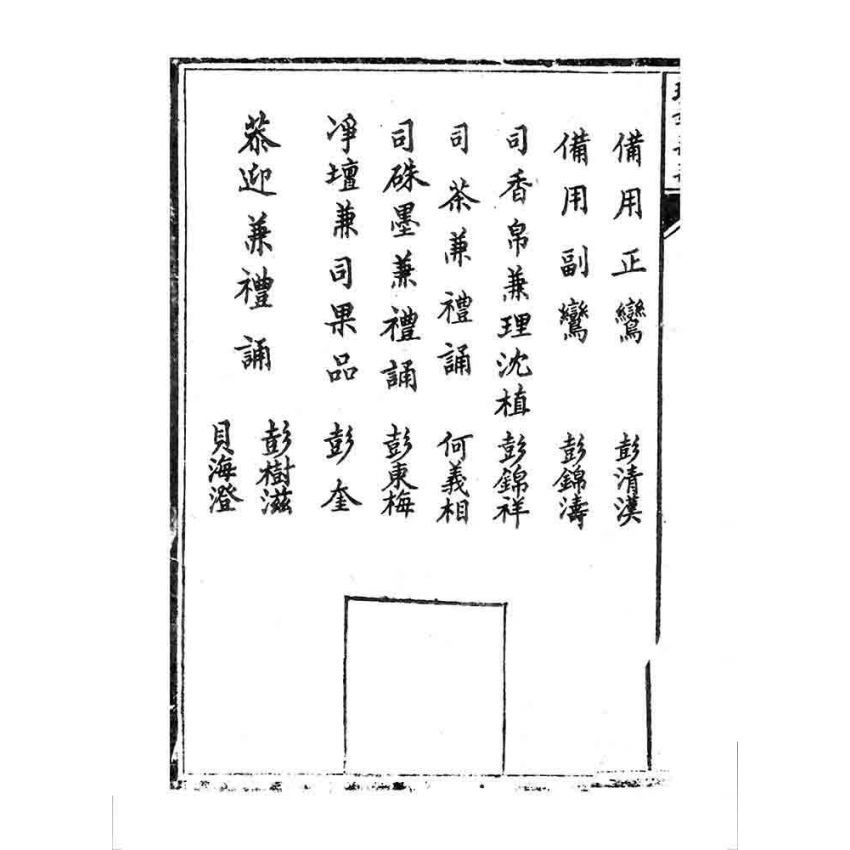 備用正鸞 彭清漢
備用副鸞 彭錦濤
司香帛兼理沈植 彭錦祥
司茶兼禮誦 何義相
司硃墨兼禮誦 彭東梅
凈壇兼司果品 彭奎
恭迎兼禮誦 彭樹滋
貝海澄